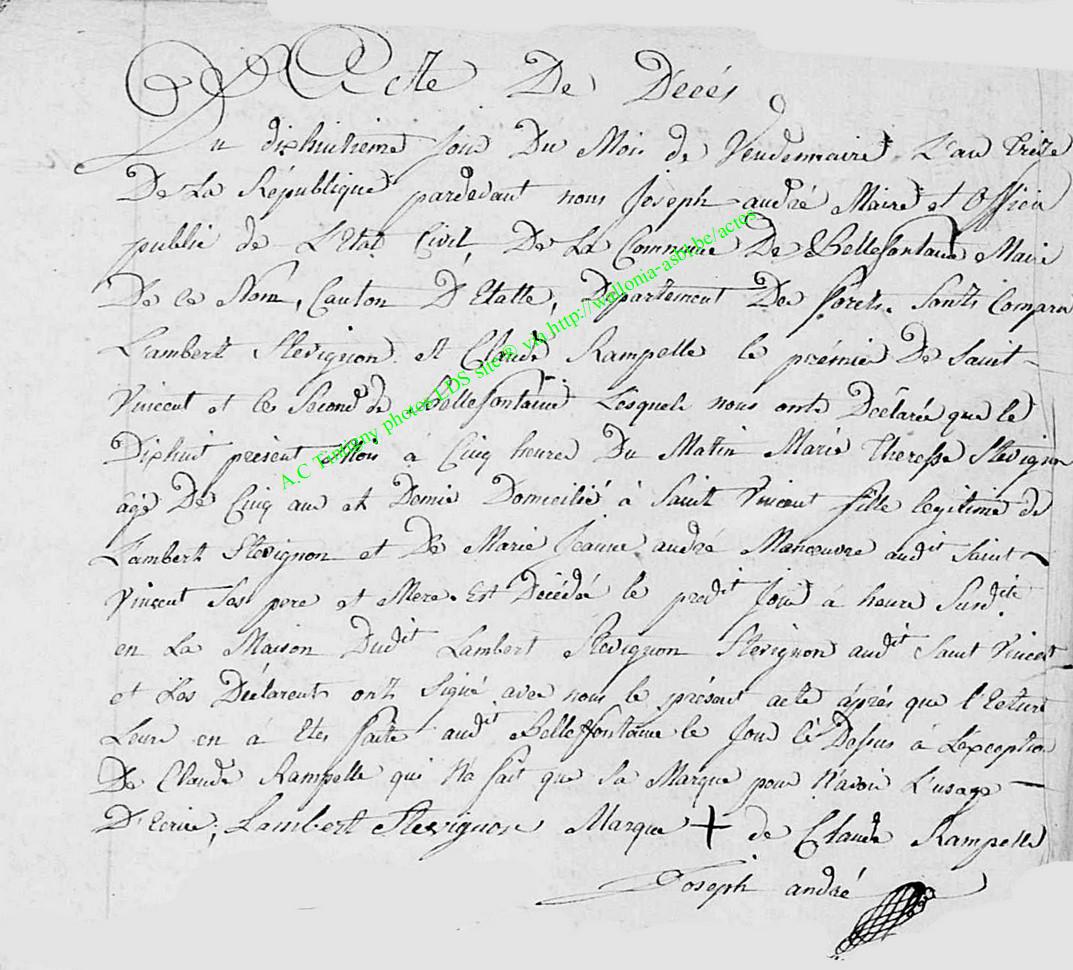 Acte De Décés
Du dixhuitieme Jour Du Mois de Vendemiaire L'an Treize
De La République pardevant nous Joseph andré Maire et Officier
public de L'Etat Civil, De La Commune De Bellefontaine Mairie
De ce Nom, Canton D'Etalle, Département Des forets. Sonts Comparu
Lambert Stevignon et Claude Rampelle le prémier De Saint
Vincent et le Second de Bellefontaine Lesquels nous onts Déclarée que le
Dixhuit présent Mois à Cinq heures Du Matin Marie Theresse Stevignon
agé De Cinq ans et Demie Domicilié à Saint Vincent fille legitime de
Lambert Stevignon et De Marie Jeanne andré Manoeuvre audit Saint
Vincent Ses pere et Mere. Est Décédé le predit Jour à heure Susdite
en La Maison Dudit Lambert Stevignon Stevignon audit Saint Vincent
et Les Déclarents onts Signé avec nous le présent acte áprés que l'Ecture
Leure en á Etes faite audit Bellefontaine le Jour lé Dessus à L'exception
De Claude Rampelle qui N'a fait que Sa Marque pour N'avoir L'usage
D'Ecrire, Lambert Stevignon Marque + de Claude Rampelle
Joseph andré
A.C Tintigny photos LDS site® via http://wallonia-asbl.be/actes